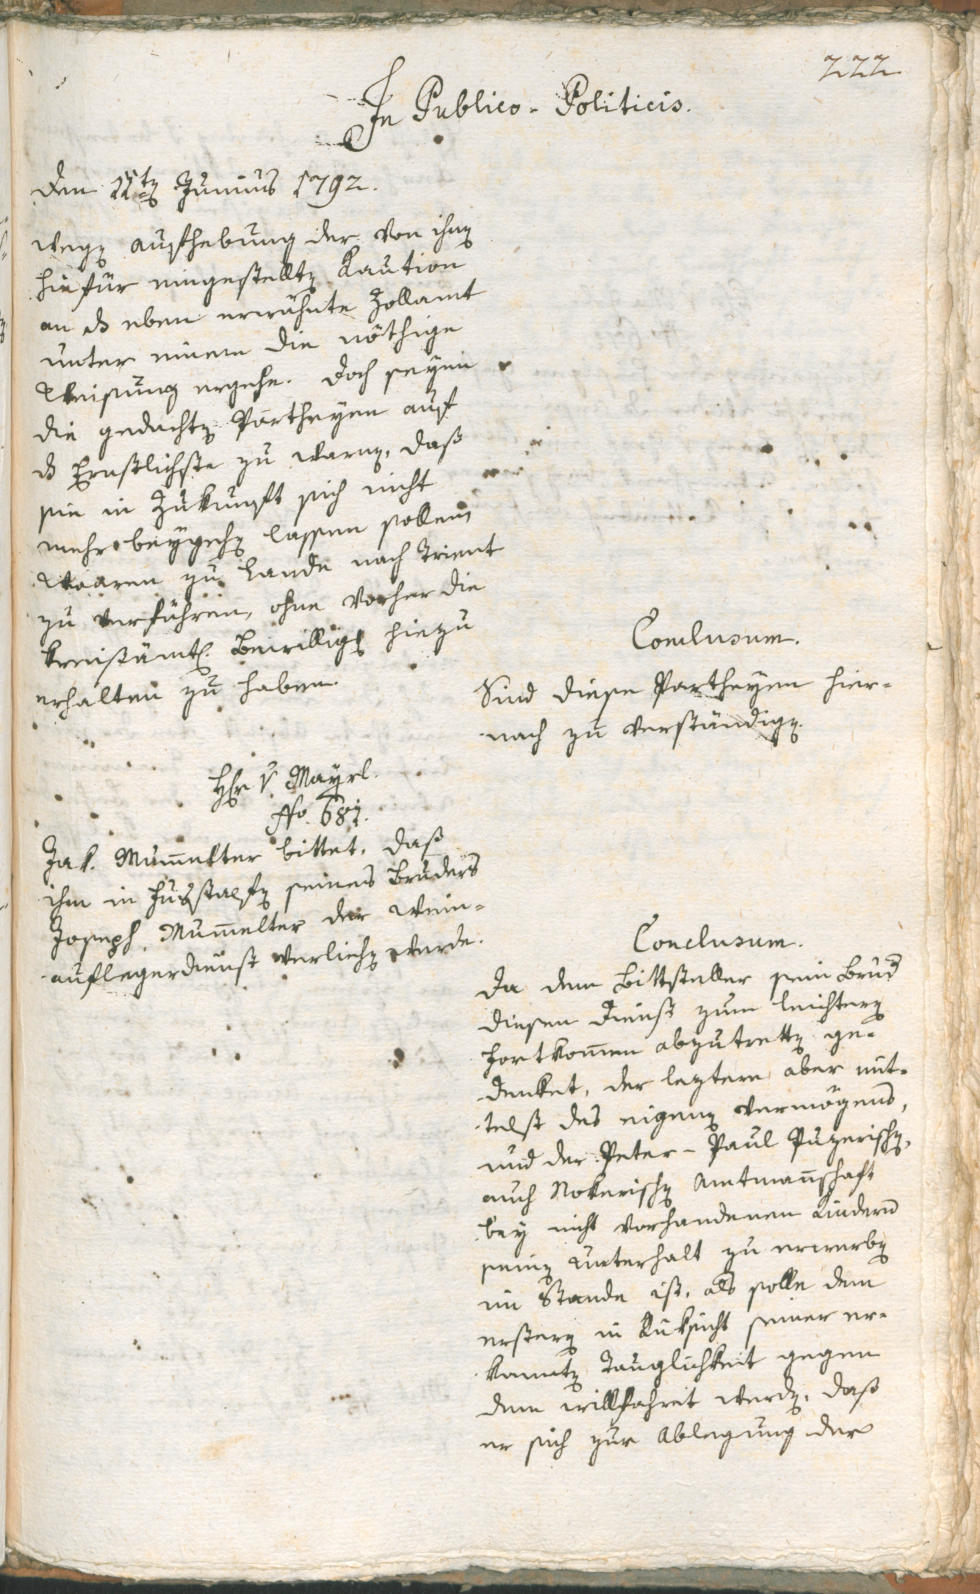 222
In Publico-Politicis.
Den 11ten Junius 1792.
wegen Aufhebung der von ihnen
hiefür eingestellten Kaution
an das eben erwähnte Zollamt
unter einem die nöthige
Weisung ergehe. Doch seyen
die gedachten Partheyen auf
das Ernstlichste zu warnen, daß
sie in Zukunft sich nicht
mehr beygehen lassen sollen,
Waaren zu Lande nach Trient
zu verführen, ohne vorher die
kreisämtl. Bewilligung hiezu
erhalten zu haben.
Conclusum.
Sind diese Partheyen hier-
nach zu verständigen.
Hr. v. Mayrl.
No. 681.
Jak. Mumelter bittet, daß
ihm in Fusstapfen seines Bruders
Joseph Mumelter der Wein-
auflegerdienst verliehen werde.
Conclusum.
Da dem Bittsteller sein Bruder
diesen Dienst zum leichtern
Fortkommen abzutretten ge-
denket, der leztere aber mit-
telst des eigenen Vermögens,
und der Peter-Paul Puzerischen,
auch Nokerischen Amtmannschaft
bey nicht vorhandenen Kindern
seinen Unterhalt zu erwerben
im Stande ist, als solle dem
erstern in Rüksicht seiner er-
kannten Tauglichkeit gegen
deme willfahret werden, daß
er sich zur Ablegung der